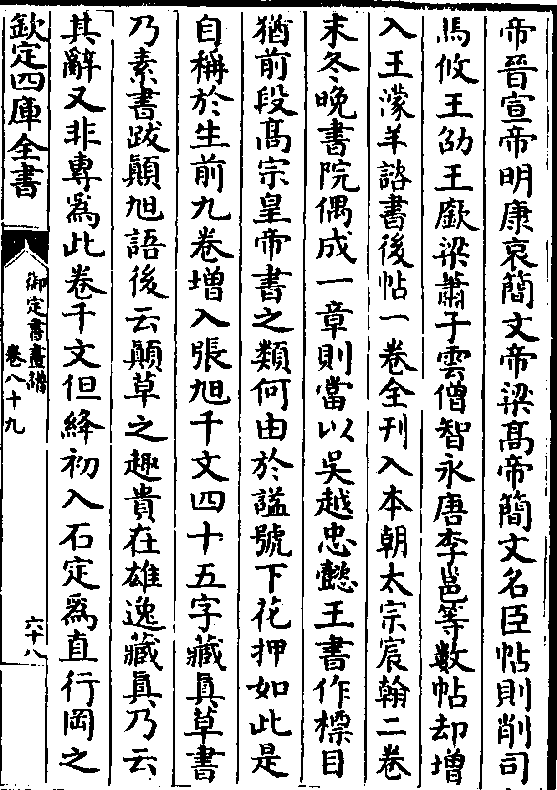 帝晉宣帝明康哀簡文帝梁髙帝簡文名臣帖則削司
馬攸王劭王廞梁蕭子雲僧智永唐李邕等數帖却增
入王濛羊諮書後帖一卷全刊入本朝太宗宸翰二卷
末冬晚書院偶成一章則當以吳越忠懿王書作標目
猶前段髙宗皇帝書之類何由於諡號下花押如此是
自稱於生前九卷増入張旭千文四十五字藏真草書
乃素書跋顛旭語後云顛草之趣貴在雄逸藏真乃云
其辭又非專為此卷千文但絳初入石定為直行岡之
欽定四庫全書
御定書畫譜
卷八十九
六十八